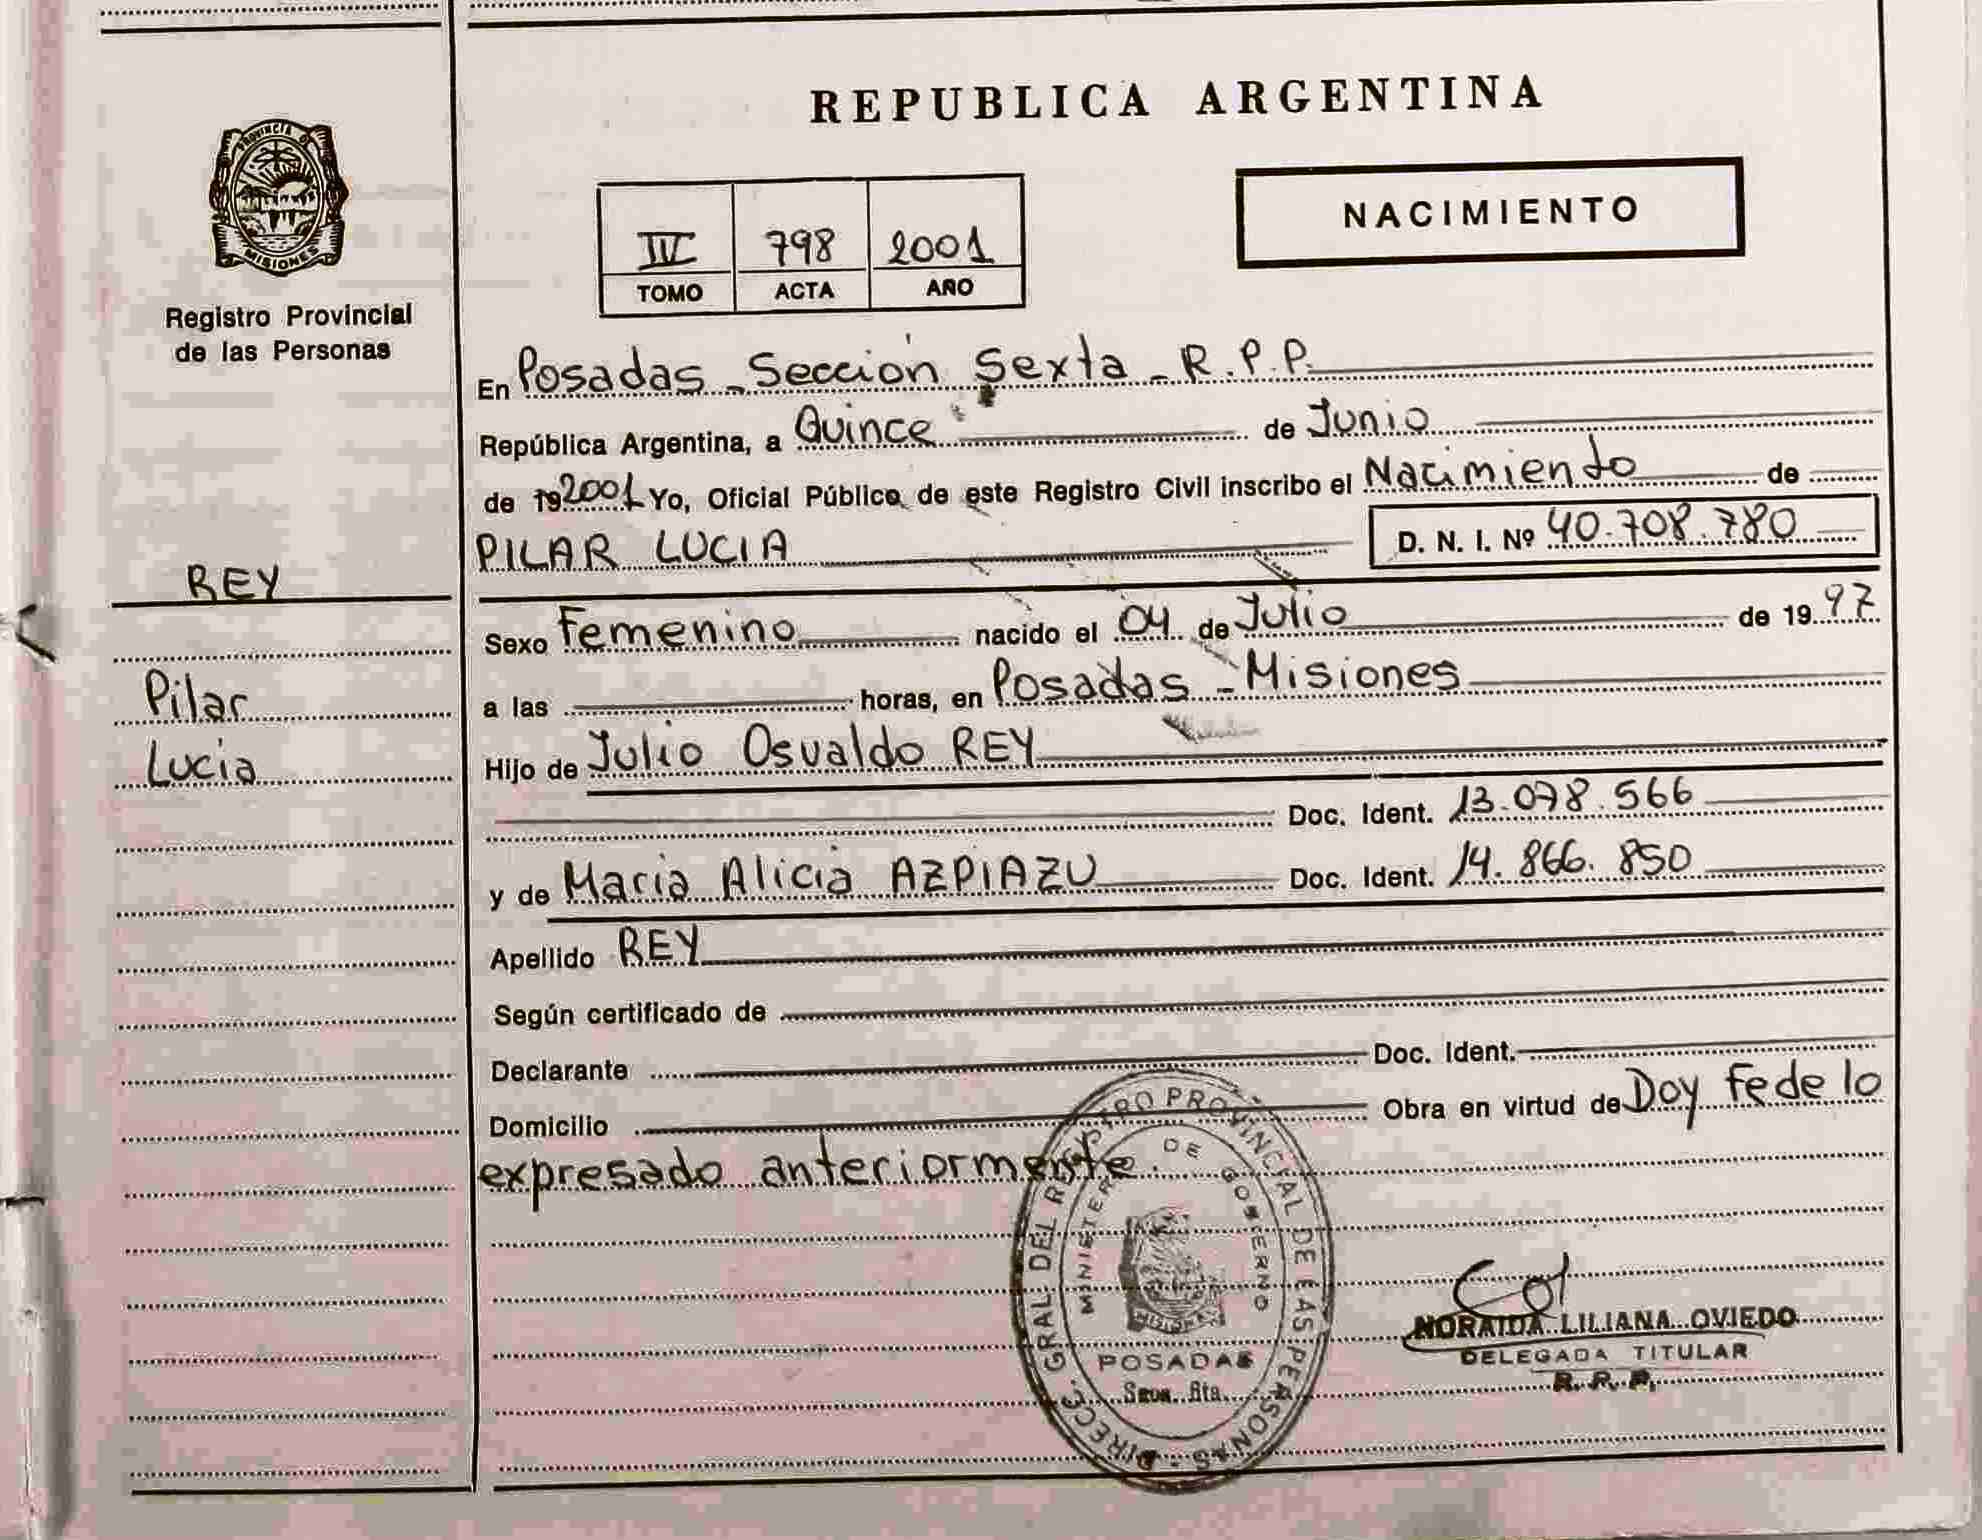 REPUBLICA ARGENTINA
PROVINCIA DE
MISIONES
Registro Provincial
de las Personas
NACIMIENTO
IV 798 2001
TOMO ACTA AÑO
En Posadas - Sección Sexta - R.P.P.
República Argentina, a Quince de Junio
de 19 2001 Yo, Oficial Público de este Registro Civil inscribo el Nacimiento de
PILAR LUCIA D. N. I. Nº 40.708.780
REY
Sexo Femenino nacido el 04 de Julio de 19 97
Pilar
a las horas, en Posadas - Misiones
Lucia
Hijo de Julio Osvaldo REY
Doc. Ident. 13.078.566
y de Maria Alicia AZPIAZU Doc. Ident. 14.866.850
Apellido REY
Según certificado de
Declarante Doc. Ident.
Domicilio Obra en virtud de Doy fe de lo
expresado anteriormente.
DIRECC. GRAL. DEL REGISTRO PROVINCIAL DE LAS PERSONAS
MINISTERIO DE GOBIERNO
MISIONES
POSADAS
6ta.
NORAIDA LILIANA OVIEDO
DELEGADA TITULAR
R. R. P.